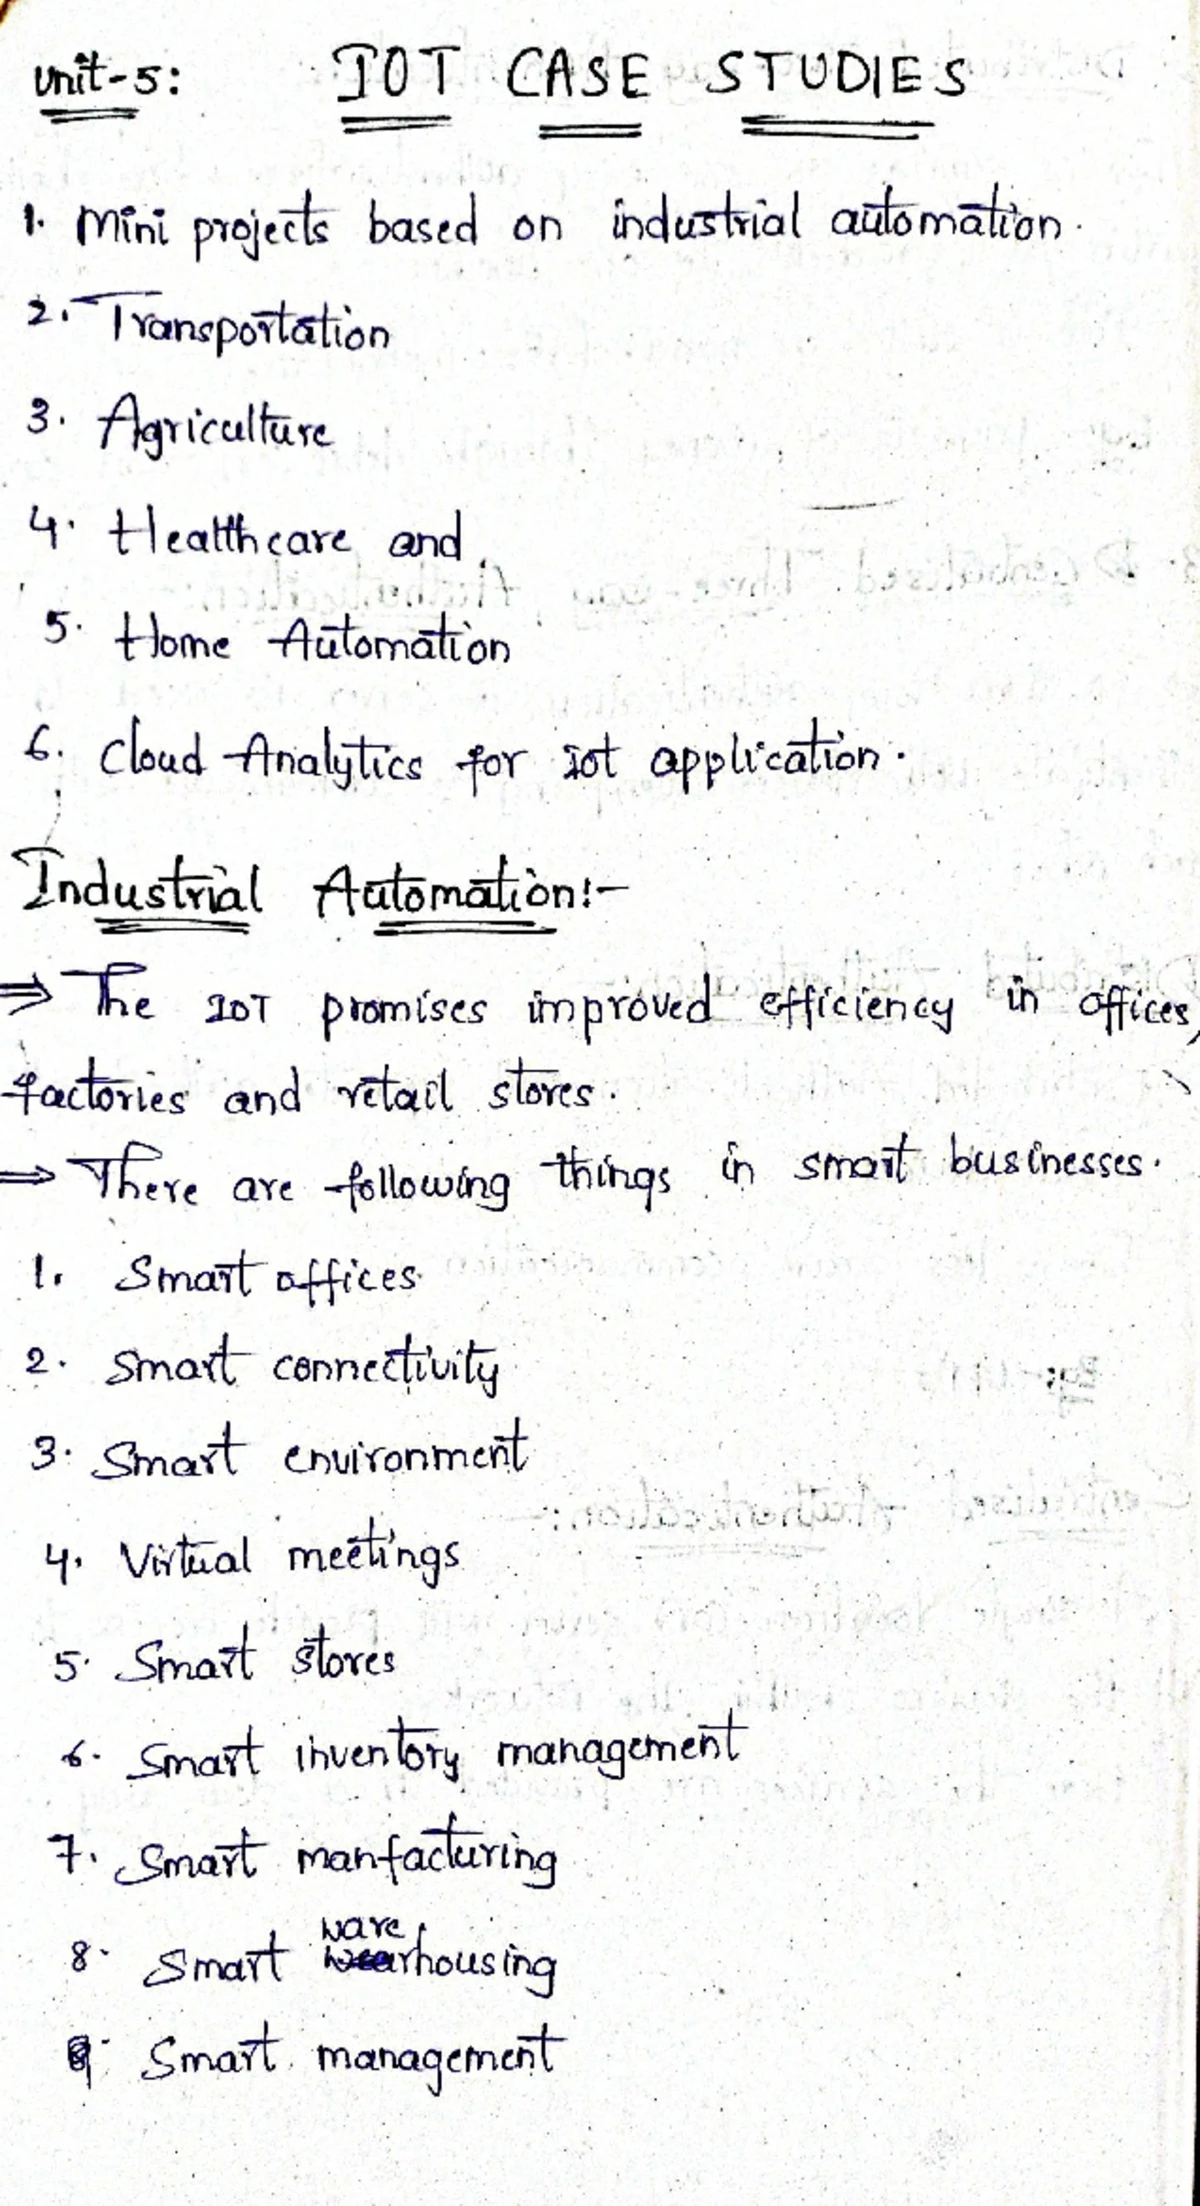 unit-5: IOT CASE STUDIES
1. Mini projects based on industrial automation.
2. Transportation
3. Agriculture
4. Healthcare and
5. Home Automation
6. Cloud Analytics for iot application.
Industrial Automation:-
⇒ The IOT promises improved efficiency in offices,
factories and retail stores.
⇒ There are following things in smart businesses.
1. Smart offices
2. Smart connectivity
3. Smart environment
4. Virtual meetings
5. Smart stores
6. Smart inventory management
7. Smart manfacturing
8. Smart warehousing
9. Smart management